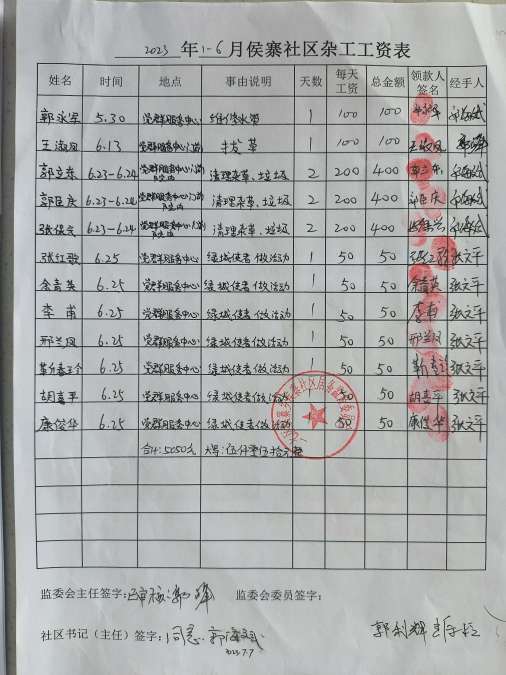 2023 年 1-6 月侯寨社区杂工工资表
姓名 时间 地点 事由说明 天数 每天工资 总金额 领款人签名 经手人
郭永军 5.30 党群服务中心 维修水管 1 100 100
王淑凤 6.13 党群服务中心门前 1 100 100 王淑凤
6.23-6.24 党群服务中心门前 清理杂草、垃圾 2 200 400
郭臣庆 6.23-6.24 党群服务中心门前 清理杂草、垃圾 2 200 400 郭臣庆
张俊兴 6.23-6.24 党群服务中心门前 清理杂草、垃圾 2 200 400 张俊兴
张红歌 6.25 党群服务中心 绿城使者做活动 1 50 50 张红歌 张文平
余喜英 6.25 党群服务中心 绿城使者做活动 1 50 50 余喜英 张文平
李甫 6.25 党群服务中心 绿城使者做活动 1 50 50 李甫 张文平
邢兰凤 6.25 党群服务中心 绿城使者做活动 1 50 50 邢兰凤 张文平
6.25 党群服务中心 绿城使者做活动 1 50 50 张文平
胡喜平 6.25 党群服务中心 绿城使者做活动 1 50 50 胡喜平 张文平
康俊华 6.25 党群服务中心 绿城使者做活动 1 50 50 康俊华 张文平
合计:5050元 大写:伍仟零伍拾元整
监委会主任签字: 监委会委员签字:
社区书记(主任)签字:同意
郭利辉
2023.7.7